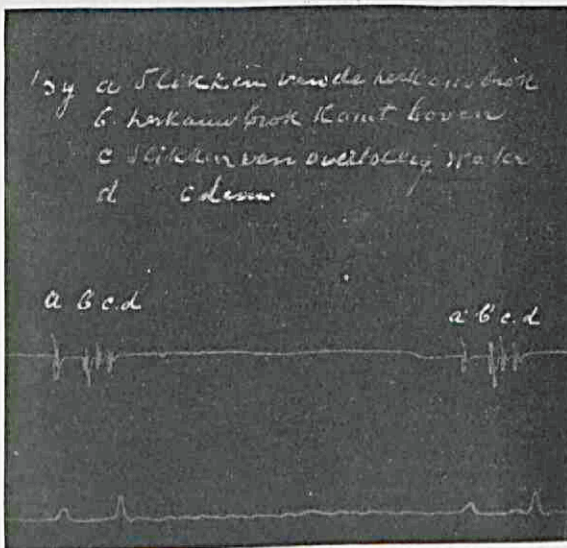 by a slikken van de herkauwbrok
b. herkauwbrok komt boven
c slikken van overtollig water
d idem
a b c. d
a b c. d